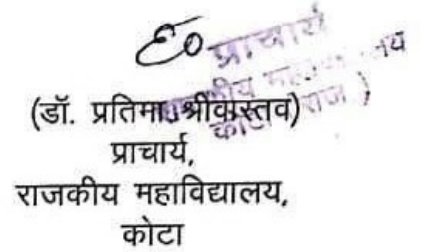 प्राचार्य
राजकीय महाविद्यालय
कोटा (राज)
(डॉ. प्रतिमा श्रीवास्तव)
प्राचार्य,
राजकीय महाविद्यालय,
कोटा